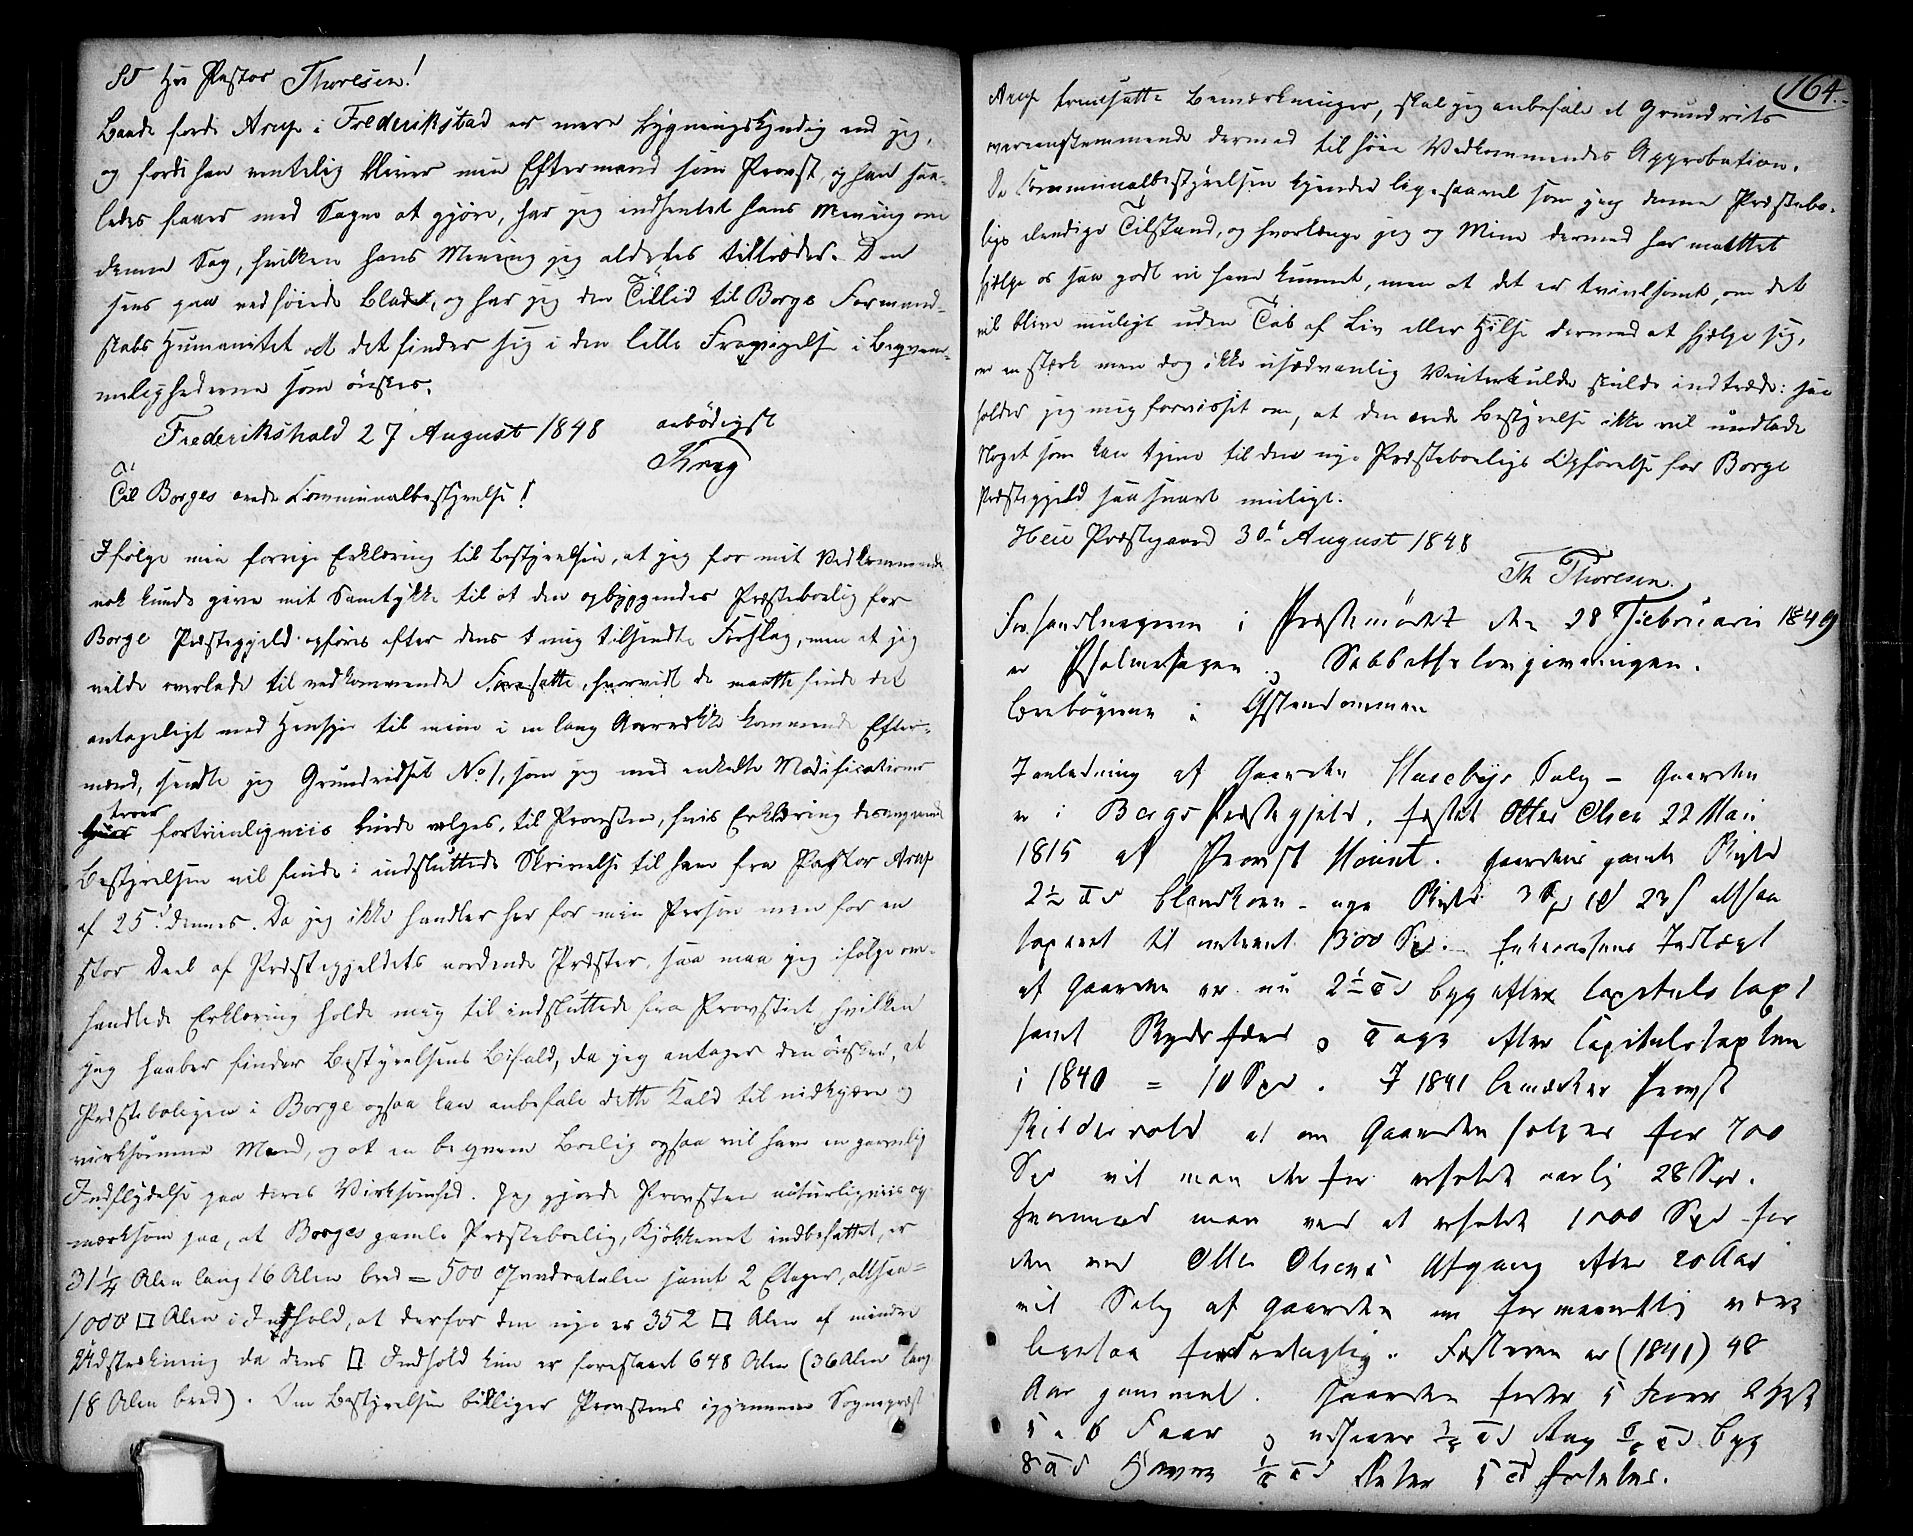 ST Hr Pastor Thoresen!
Baade fordi Arup i Frederikstad er mere bygningskyndig end jeg,
og fordi han ventelig bliver min Eftermand som Provst, og han saa-
ledes faaer med Sagen at gjöre, har jeg indhentet hans Mening om
denne Sag, hvilken hans Mening jeg aldeles tiltræder. Den
sees paa vedföiede Blad, og har jeg den Tillid til Borge Formand-
skabs Humanitet at det finder sig i den lille Fravigelse i Beqvem-
melighederne som önskes.
Frederikshald 27 August 1848 ærbödigst
Krag
Til Borges ærede Communalbestyrelse!
Ifölge min forrige Erklæring til Bestyrelsen, at jeg for mit Vedkommende
nok kunde give mit Samtykke til at den opbyggendes Præstebolig for
Borge Præstegjeld opföres efter dens mig tilsendte Forslag, men at jeg
vilde overlade til vedkommende Foresatte, hvorvidt de maatte finde det
antageligt med Hensyn til mine i en lang Aarrække kommende Efter-
mænd, sendte jeg Grundridset No 1, som jeg med enkelte Modificationer
troer fortrinligviis burde vælges, til Provsten, hvis Erklæring desangaaende
Bestyrelsen vil finde i indsluttede Skrivelse til ham fra Pastor Arup
af 25 dennes. Da jeg ikke handler her for min Person men for en
stor Deel af Præstegjeldets vordende Præster, saa maa jeg ifölge om-
handlede Erklæring holde mig til indsluttede fra Provstiet hvilken
jeg haaber finder Bestyrelsens Bifald, da jeg antager den önsker, at
Præsteboligen i Borge ogsaa kan anbefale dette Kald til nidkjære og
virksomme Mænd, og at en beqvem Bolig ogsaa vil have en gavnlig
Indflydelse paa deres Virksomhed. Jeg gjorde Provsten naturligviis op-
mærksom paa, at Borges gamle Præstebolig, Kjökkenet indbefattet, er
31 1/4 Alen lang 16 Alen bred = 500 Qvadratalen samt 2 Etager, altsaa =
1000 □ Alen i Indhold, at derfor den nye er 352 □ Alen af mindre
Udstrækning da dens □ Indhold kun er forestaaet 648 Alen (36 Alen lang
18 Alen bred). Om Bestyrelsen billiger Provstens igjennem Sognepræst
164.
Arup fremsatte Bemærkninger, skal jeg anbefale et Grundrits
overensstemmende dermed til höie Vedkommendes Approbation.
Da Communalbestyrelsen kjender ligesaavel som jeg denne Præstebo-
ligs elendige Tilstand, og hvorlænge jeg og Mine dermed har maattet
hjelpe os saa godt vi have kunnet, men at det er tvivlsomt, om det
vil blive muligt uden Tab af Liv eller Helse dermed at hjelpe sig,
om en stærk men dog ikke usædvanlig Vinterkulde skulde indtræde: saa
holder jeg mig forvisset om, at den ærede Bestyrelse ikke vil undlade
Noget som kan tjene til den nye Præsteboligs Opförelse for Borge
Præstegjeld saa snart muligt.
Præstegaard 30 August 1848
Th Thoresen.
Forhandlingerne i Præstemödet den 28 Februari 1849
er Psalmesagen Sabbathslovgivningen.
Lærebögerne i
I anledning af Gaarden Huseby Salg – Gaarden
er i Bergs Præstegjeld, fæstet Otter Olsen 22 Mai
1815 af Provst Gaardens gamle Skyld
2 1/2 Td Blandkorn – nye Skyld 3 1 23 altsaa
taxeret til omtrent 1300 Spd. Enkens Indtægt
af Gaarden er nu 2 1/2 Td Byg efter Capitels taxt
samt og Tage efter Capitelstaxten
i 1840 = 10 Spd. I 1841 bemærker Provst
Riddervold at om Gaarden sælges for 700
Spd vil man derfor erholde aarlig 28 Spd.
hvorimod man ved at erholde 1000 Spd for
den ved Otter Olsens Afgang efter 20 Aar
vil Salg af Gaarden nu formeentlig være
ligesaa fordeelagtig. Fæsteren er (1841) 48
Aar gammel. Gaarden föder 5 Köer 2 Heste
5 a 6 Faar og udsaaer Td Rug Td Byg
8 Td Havre Td 5 Td Poteter.